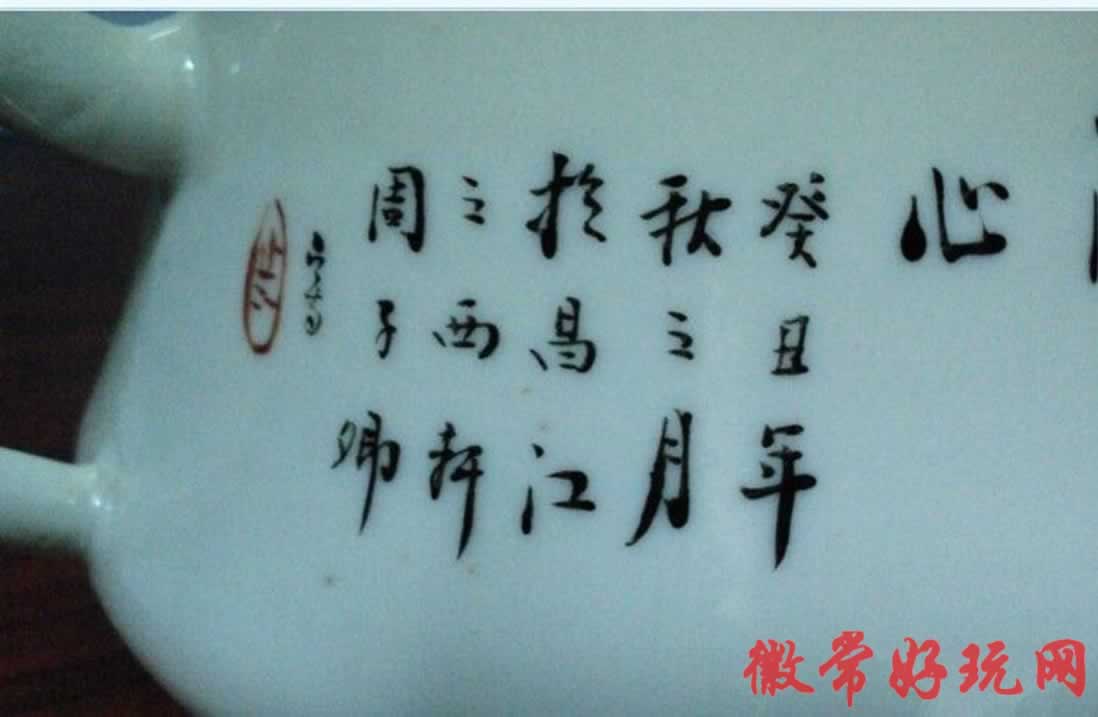 心
癸丑年
秋之月
於昌江
之西軒
周子卿
徽常好玩网